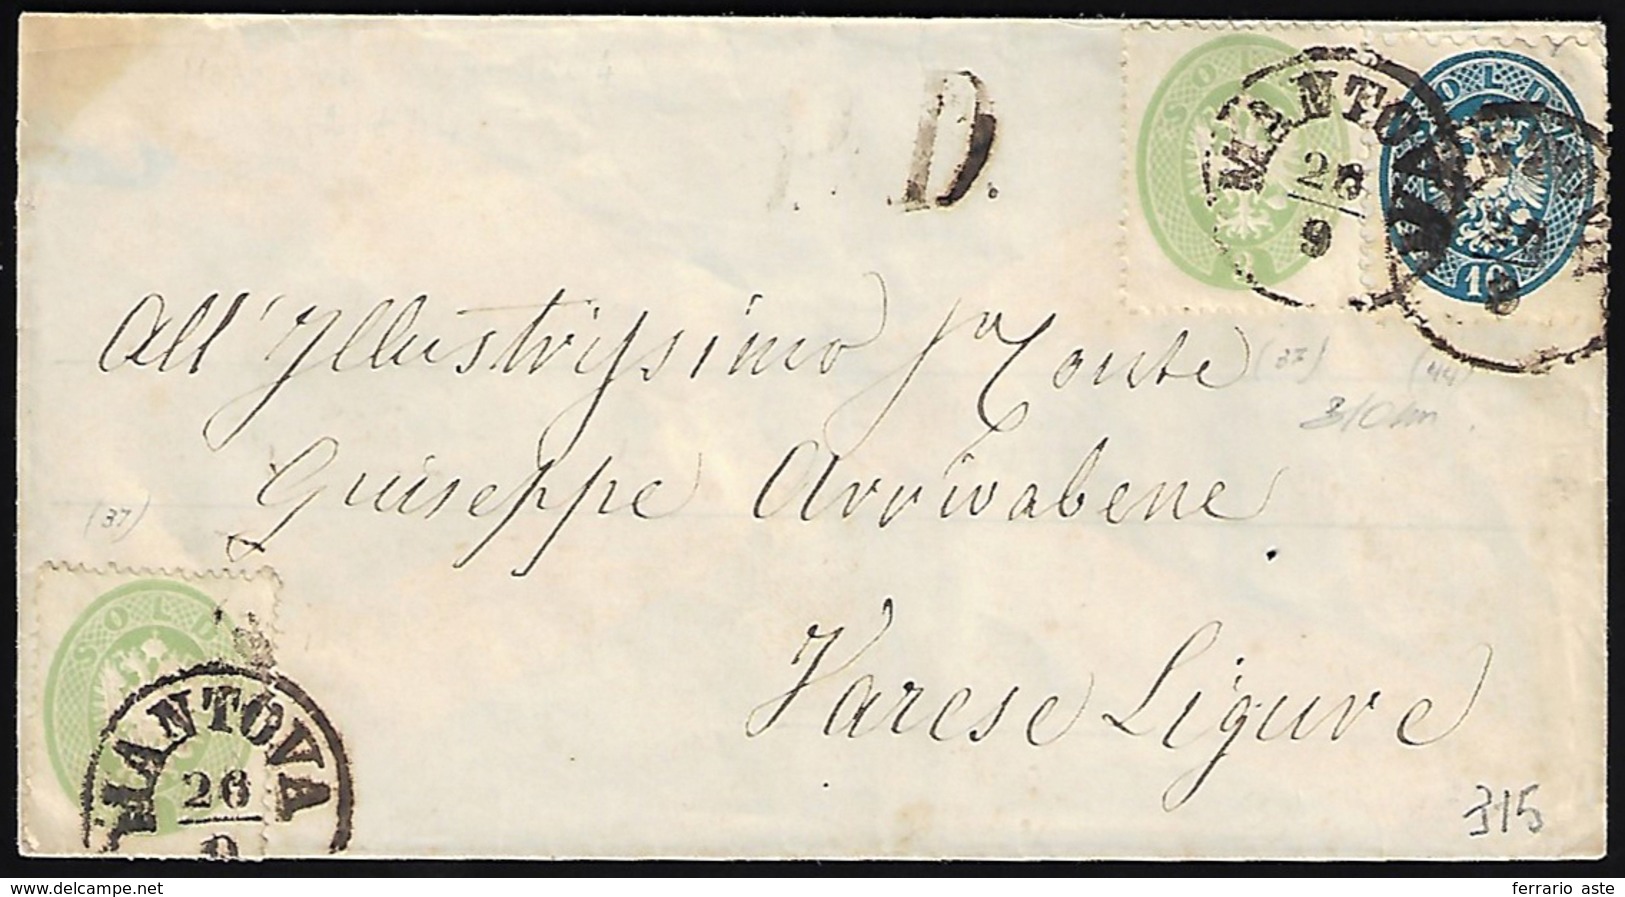 P. D.
SOLDI
3
SOLDI
10
MANTOVA
26
9
MANTOVA
26
9
All'Illustrissimo Sr Conte
(37)
(44)
Giuseppe Arrivabene
(37)
.
Varese Ligure
SOLD
MANTOVA
26
9
315
www.delcampe.net
ferrario aste